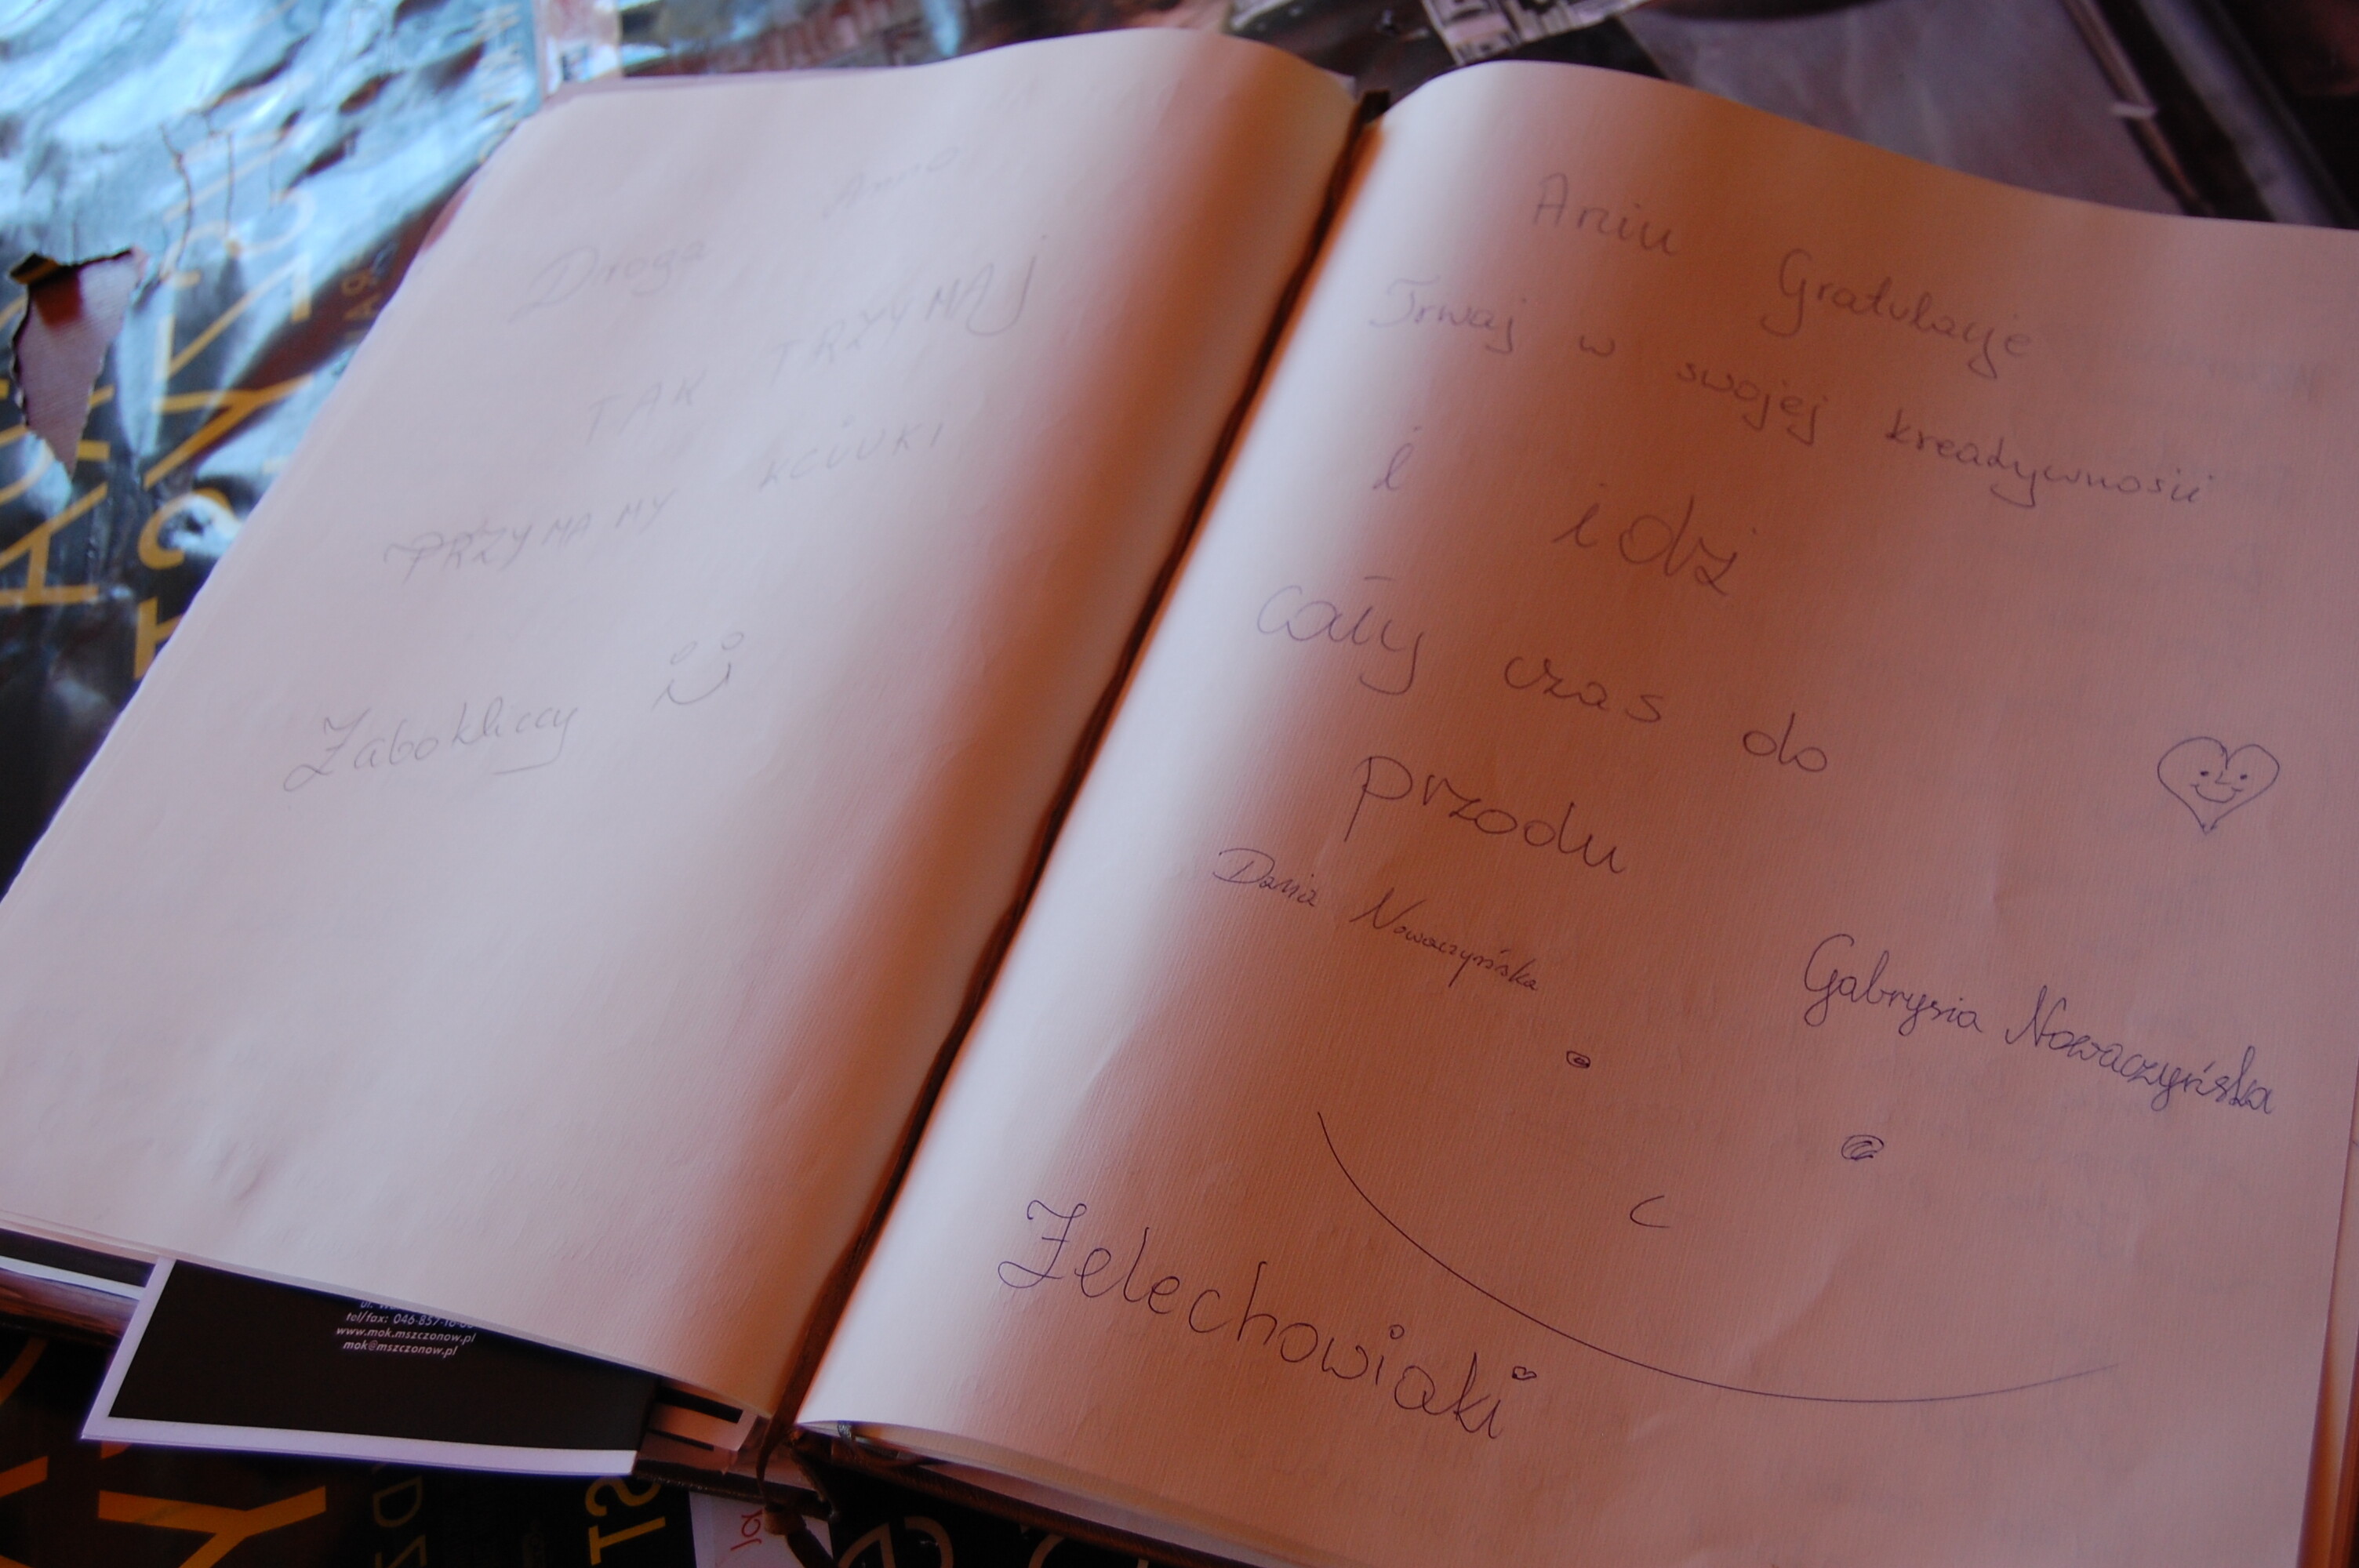 Droga Anno
TAK TRZYMAJ
PRZYMAMY KCIUKI
Żabokliccy
Aniu Gratulacje
Trwaj w swojej kreatywności
i idź
cały czas do
przodu
Daria Nowaczyńska
Gabrysia Nowaczyńska
Żelechowiaki
tel/fax: 046-857-16-
www.mok.mszczonow.pl
mok@mszczonow.pl